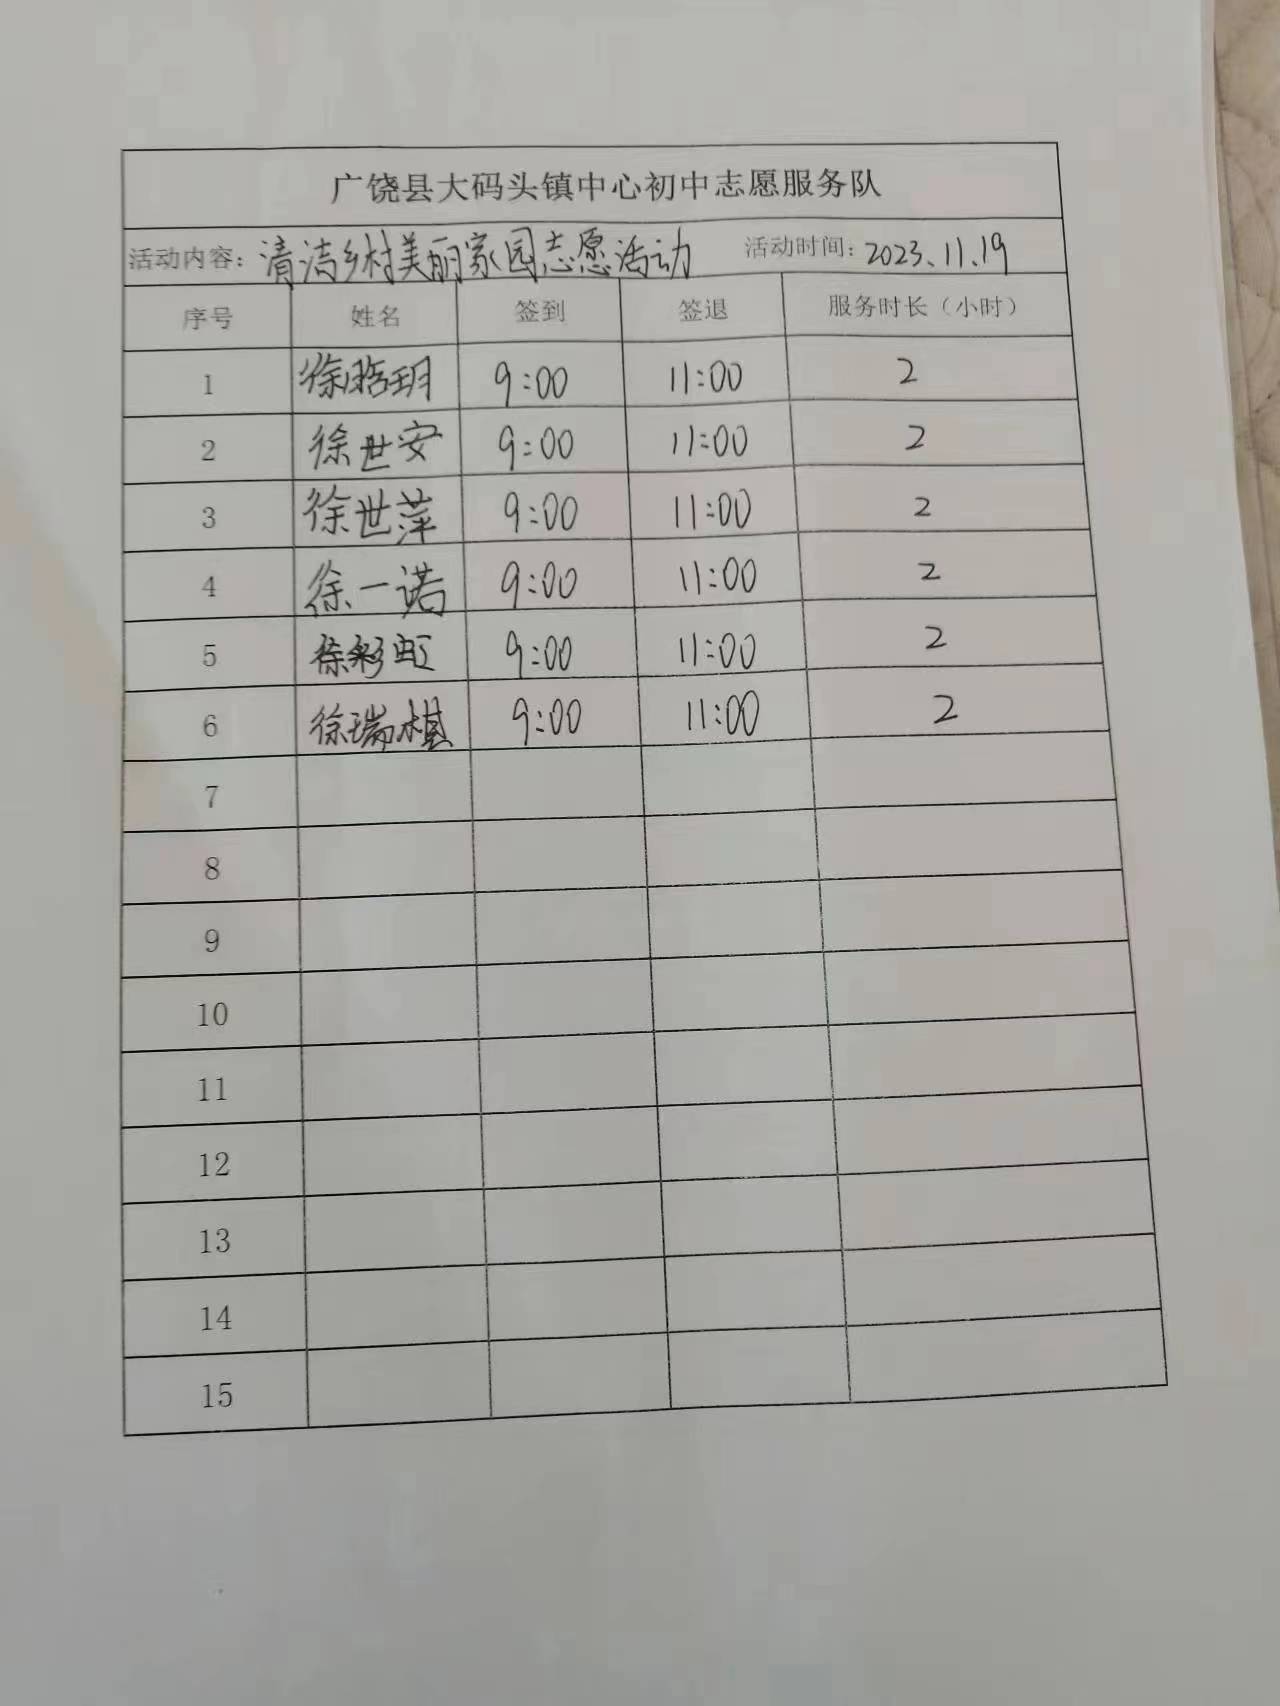 广饶县大码头镇中心初中志愿服务队
活动内容：清洁乡村美丽家园志愿活动 活动时间：2023.11.19
序号 姓名 签到 签退 服务时长（小时）
1 徐晗玥 9:00 11:00 2
2 徐世安 9:00 11:00 2
3 徐世萍 9:00 11:00 2
4 徐一诺 9:00 11:00 2
5 徐彩虹 9:00 11:00 2
6 徐瑞棋 9:00 11:00 2
7
8
9
10
11
12
13
14
15